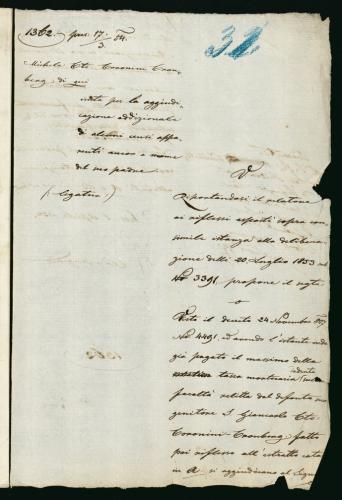 1362 / pres 17/3 54.
32
Michele Cte Coronini Cron-
berg di qui
chiede per la aggiudi-
cazione addizionale
di alcuni censi appa-
renti ancora a nome
del suo padre
(legatus)
V
Riportandosi il relatore
ai riflessi esposti sopra con-
simile istanza alla delibera-
zione delli 20 Luglio 1853 al
No 3391 propone il segte
Visto il decreto 24 Novembre
No 4491, ed avendo l'istante
già pagato il massimo della
tassa mortuaria
facoltà relitta dal defunto suo
genitore S. Giancarlo Cte
Coronini-Cronberg fatto
poi riflesso all'estratto
in A. si aggiudicano al